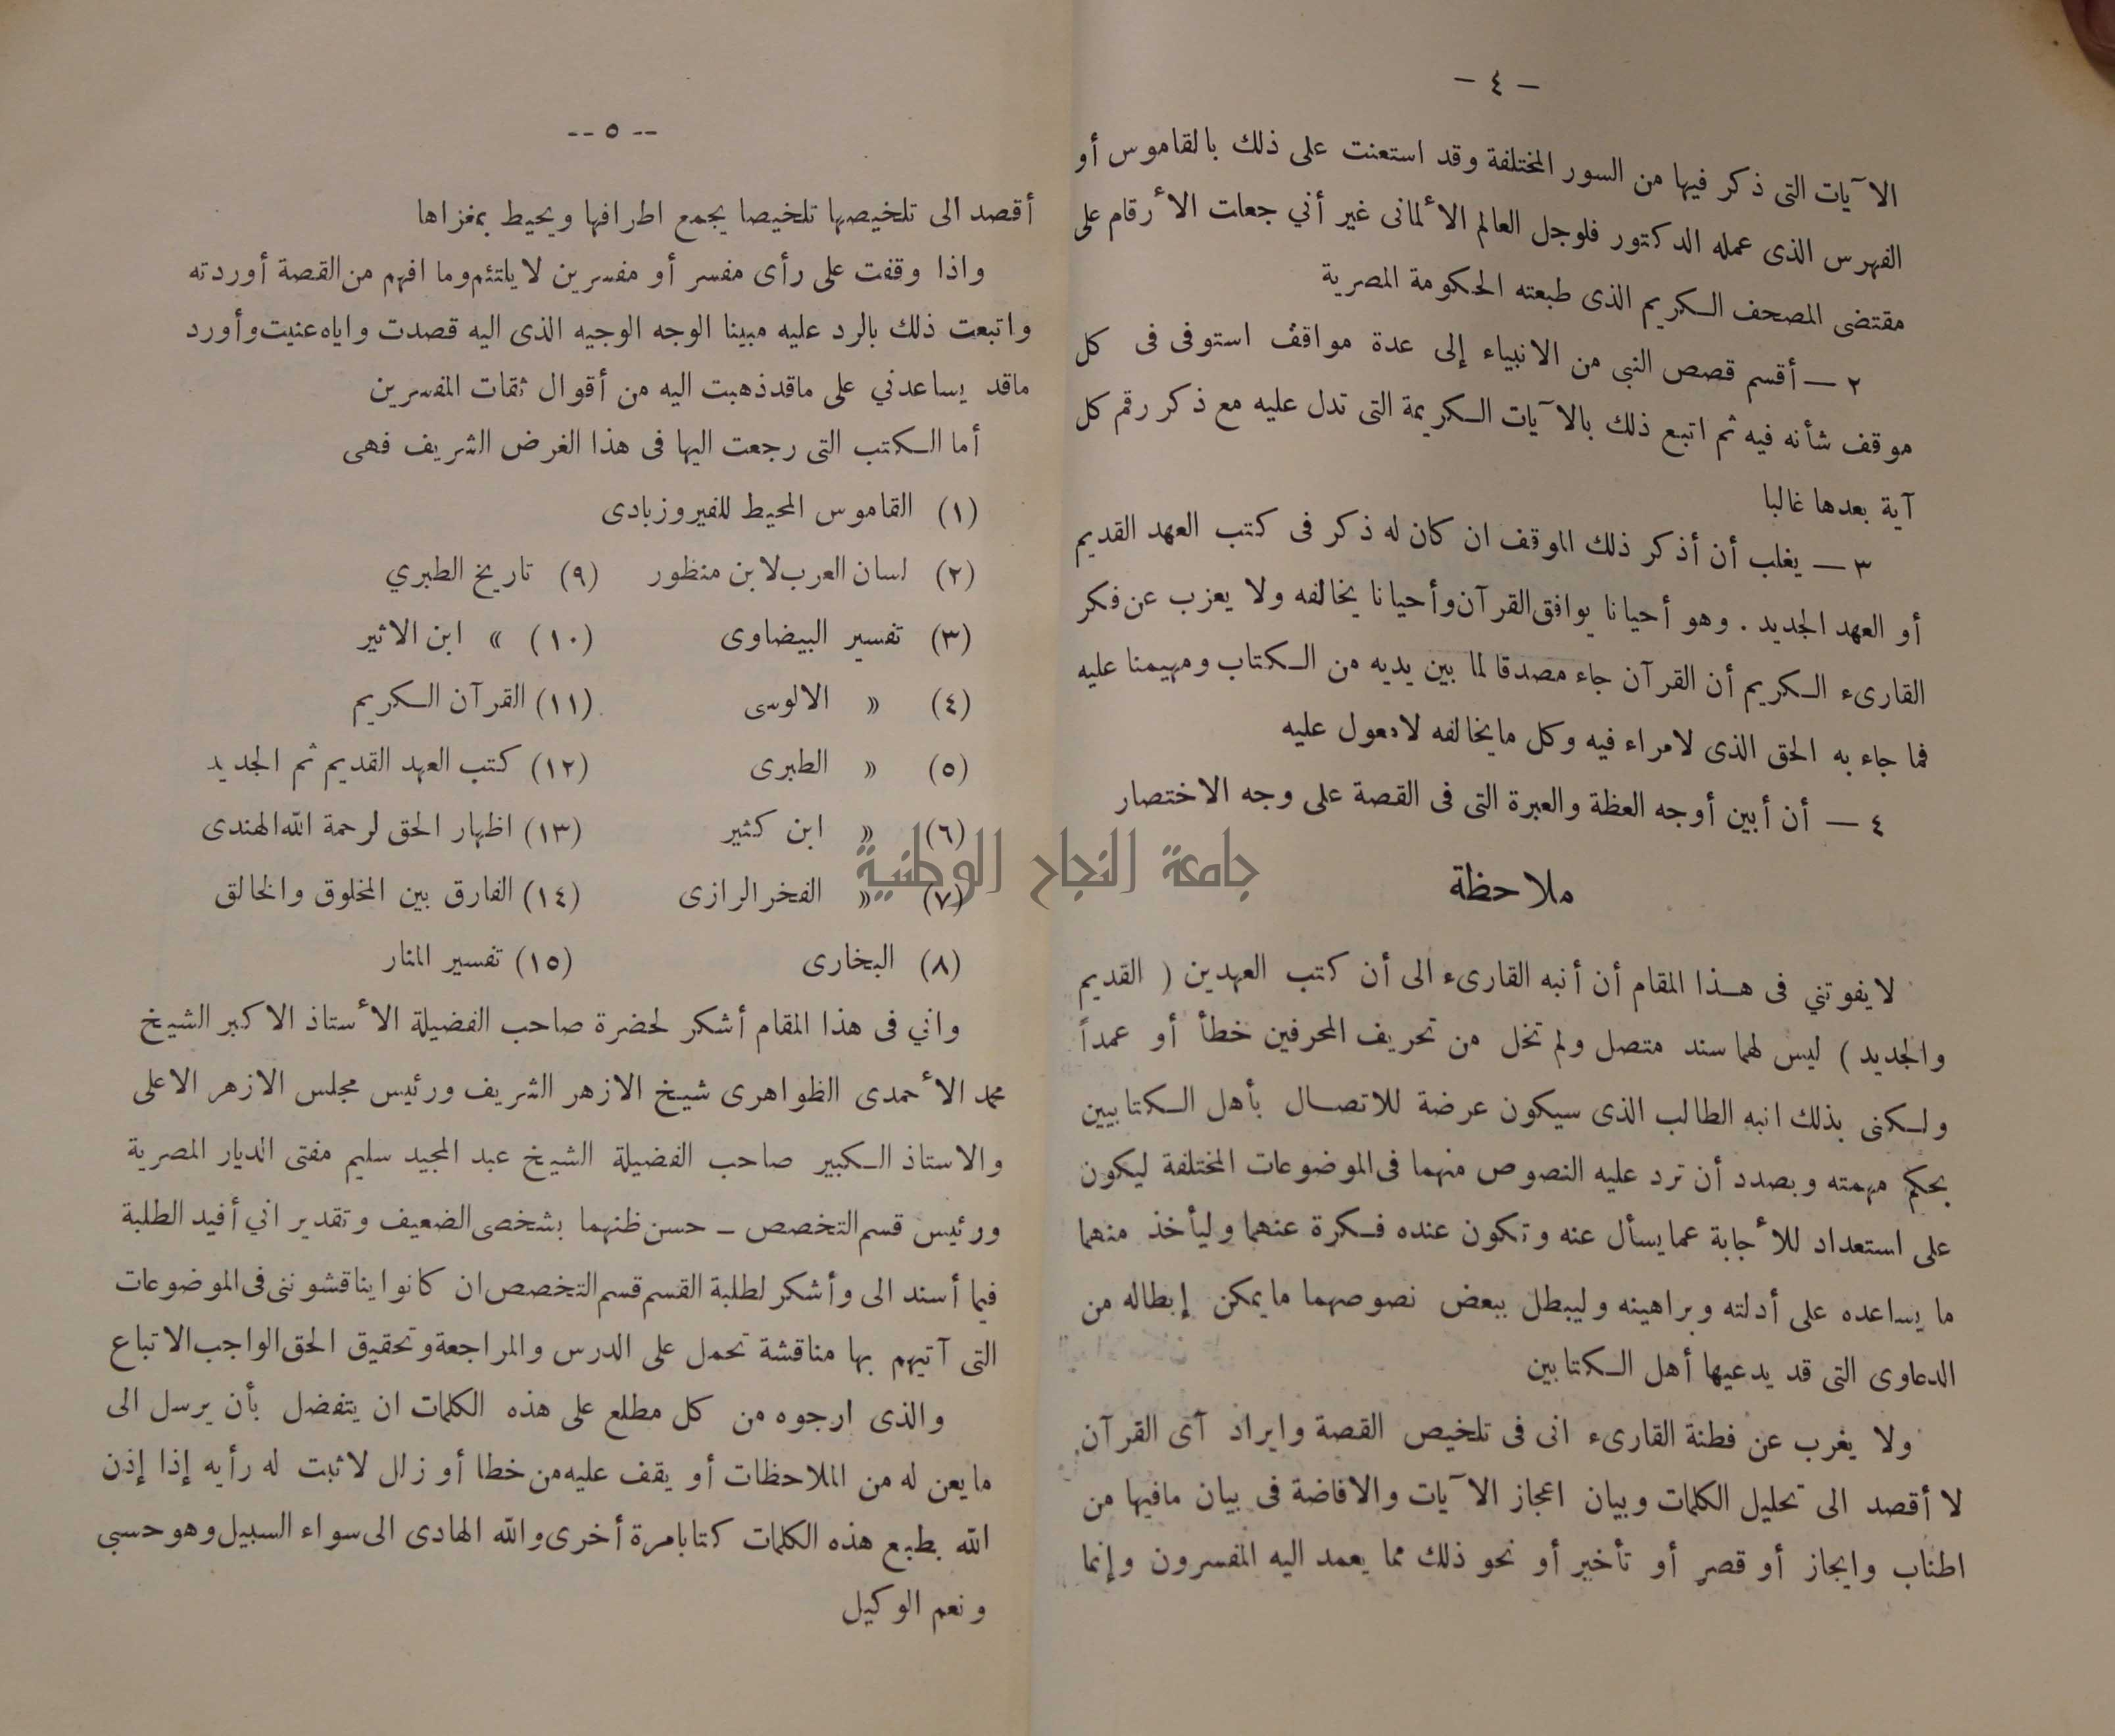 — ٤ —
الآيات التى ذكر فيها من السور المختلفة وقد استعنت على ذلك بالقاموس أو
الفهرس الذى عمله الدكتور فلوجل العالم الألمانى غير أني جعلت الأرقام على
مقتضى المصحف الكريم الذى طبعته الحكومة المصرية
٢ — أقسم قصص النبى من الانبياء إلى عدة مواقف استوفى فى كل
موقف شأنه فيه ثم اتبع ذلك بالآيات الكريمة التى تدل عليه مع ذكر رقم كل
آية بعدها غالبا
٣ — يغلب أن أذكر ذلك الموقف ان كان له ذكر فى كتب العهد القديم
أو العهد الجديد . وهو أحيانا يوافق القرآن وأحيانا يخالفه ولا يعزب عن فكر
القارىء الكريم أن القرآن جاء مصدقا لما بين يديه من الكتاب ومهيمنا عليه
فما جاء به الحق الذى لامراء فيه وكل مايخالفه لامعول عليه
٤ — أن أبين أوجه العظة والعبرة التى فى القصة على وجه الاختصار
ملاحظة
لايفوتني فى هذا المقام أن أنبه القارىء الى أن كتب العهدين ( القديم
والجديد ) ليس لهما سند متصل ولم تخل من تحريف المحرفين خطأ أو عمداً
ولكنى بذلك انبه الطالب الذى سيكون عرضة للاتصال بأهل الكتابيين
بحكم مهمته وبصدد أن ترد عليه النصوص منهما فى الموضوعات المختلفة ليكون
على استعداد للأجابة عما يسأل عنه وتكون عنده فكرة عنهما وليأخذ منهما
ما يساعده على أدلته وبراهينه وليبطل ببعض نصوصهما مايمكن إبطاله من
الدعاوى التى قد يدعيها أهل الكتابين
ولا يغرب عن فطنة القارىء انى فى تلخيص القصة وايراد آى القرآن
لا أقصد الى تحليل الكلمات وبيان اعجاز الآيات والافاضة فى بيان مافيها من
اطناب وايجاز أو قصر أو تأخير أو نحو ذلك مما يعمد اليه المفسرون وإنما
-- ٥ --
أقصد الى تلخيصها تلخيصا يجمع اطرافها ويحيط بمغزاها
واذا وقفت على رأى مفسر أو مفسرين لايلتئم وما افهم من القصة أوردته
واتبعت ذلك بالرد عليه مبينا الوجه الوجيه الذى اليه قصدت واياه عنيت وأورد
ماقد يساعدني على ماقد ذهبت اليه من أقوال ثقات المفسرين
أما الكتب التى رجعت اليها فى هذا الغرض الشريف فهى
(١) القاموس المحيط للفيروزبادى
(٢) لسان العرب لابن منظور (٩) تاريخ الطبري
(٣) تفسير البيضاوى (١٠) » ابن الاثير
(٤) » الالوسى (١١) القرآن الكريم
(٥) » الطبرى (١٢) كتب العهد القديم ثم الجديد
(٦) » ابن كثير (١٣) اظهار الحق لرحمة الله الهندى
(٧) » الفخر الرازى (١٤) الفارق بين المخلوق والخالق
(٨) البخارى (١٥) تفسير المنار
واني فى هذا المقام أشكر لحضرة صاحب الفضيلة الأستاذ الاكبر الشيخ
محمد الأحمدى الظواهرى شيخ الازهر الشريف ورئيس مجلس الازهر الاعلى
والاستاذ الكبير صاحب الفضيلة الشيخ عبد المجيد سليم مفتى الديار المصرية
ورئيس قسم التخصص – حسن ظنهما بشخصى الضعيف وتقدير اني أفيد الطلبة
فيما أسند الى وأشكر لطلبة القسم قسم التخصص ان كانوا يناقشوننى فى الموضوعات
التى آتيهم بها مناقشة تحمل على الدرس والمراجعة وتحقيق الحق الواجب الاتباع
والذى ارجوه من كل مطلع على هذه الكلمات ان يتفضل بأن يرسل الى
مايعن له من الملاحظات أو يقف عليه من خطا أو زلل لاثبت له رأيه إذا إذن
الله بطبع هذه الكلمات كتابا مرة أخرى والله الهادى الى سواء السبيل وهو حسبى
ونعم الوكيل
جامعة النجاح الوطنية